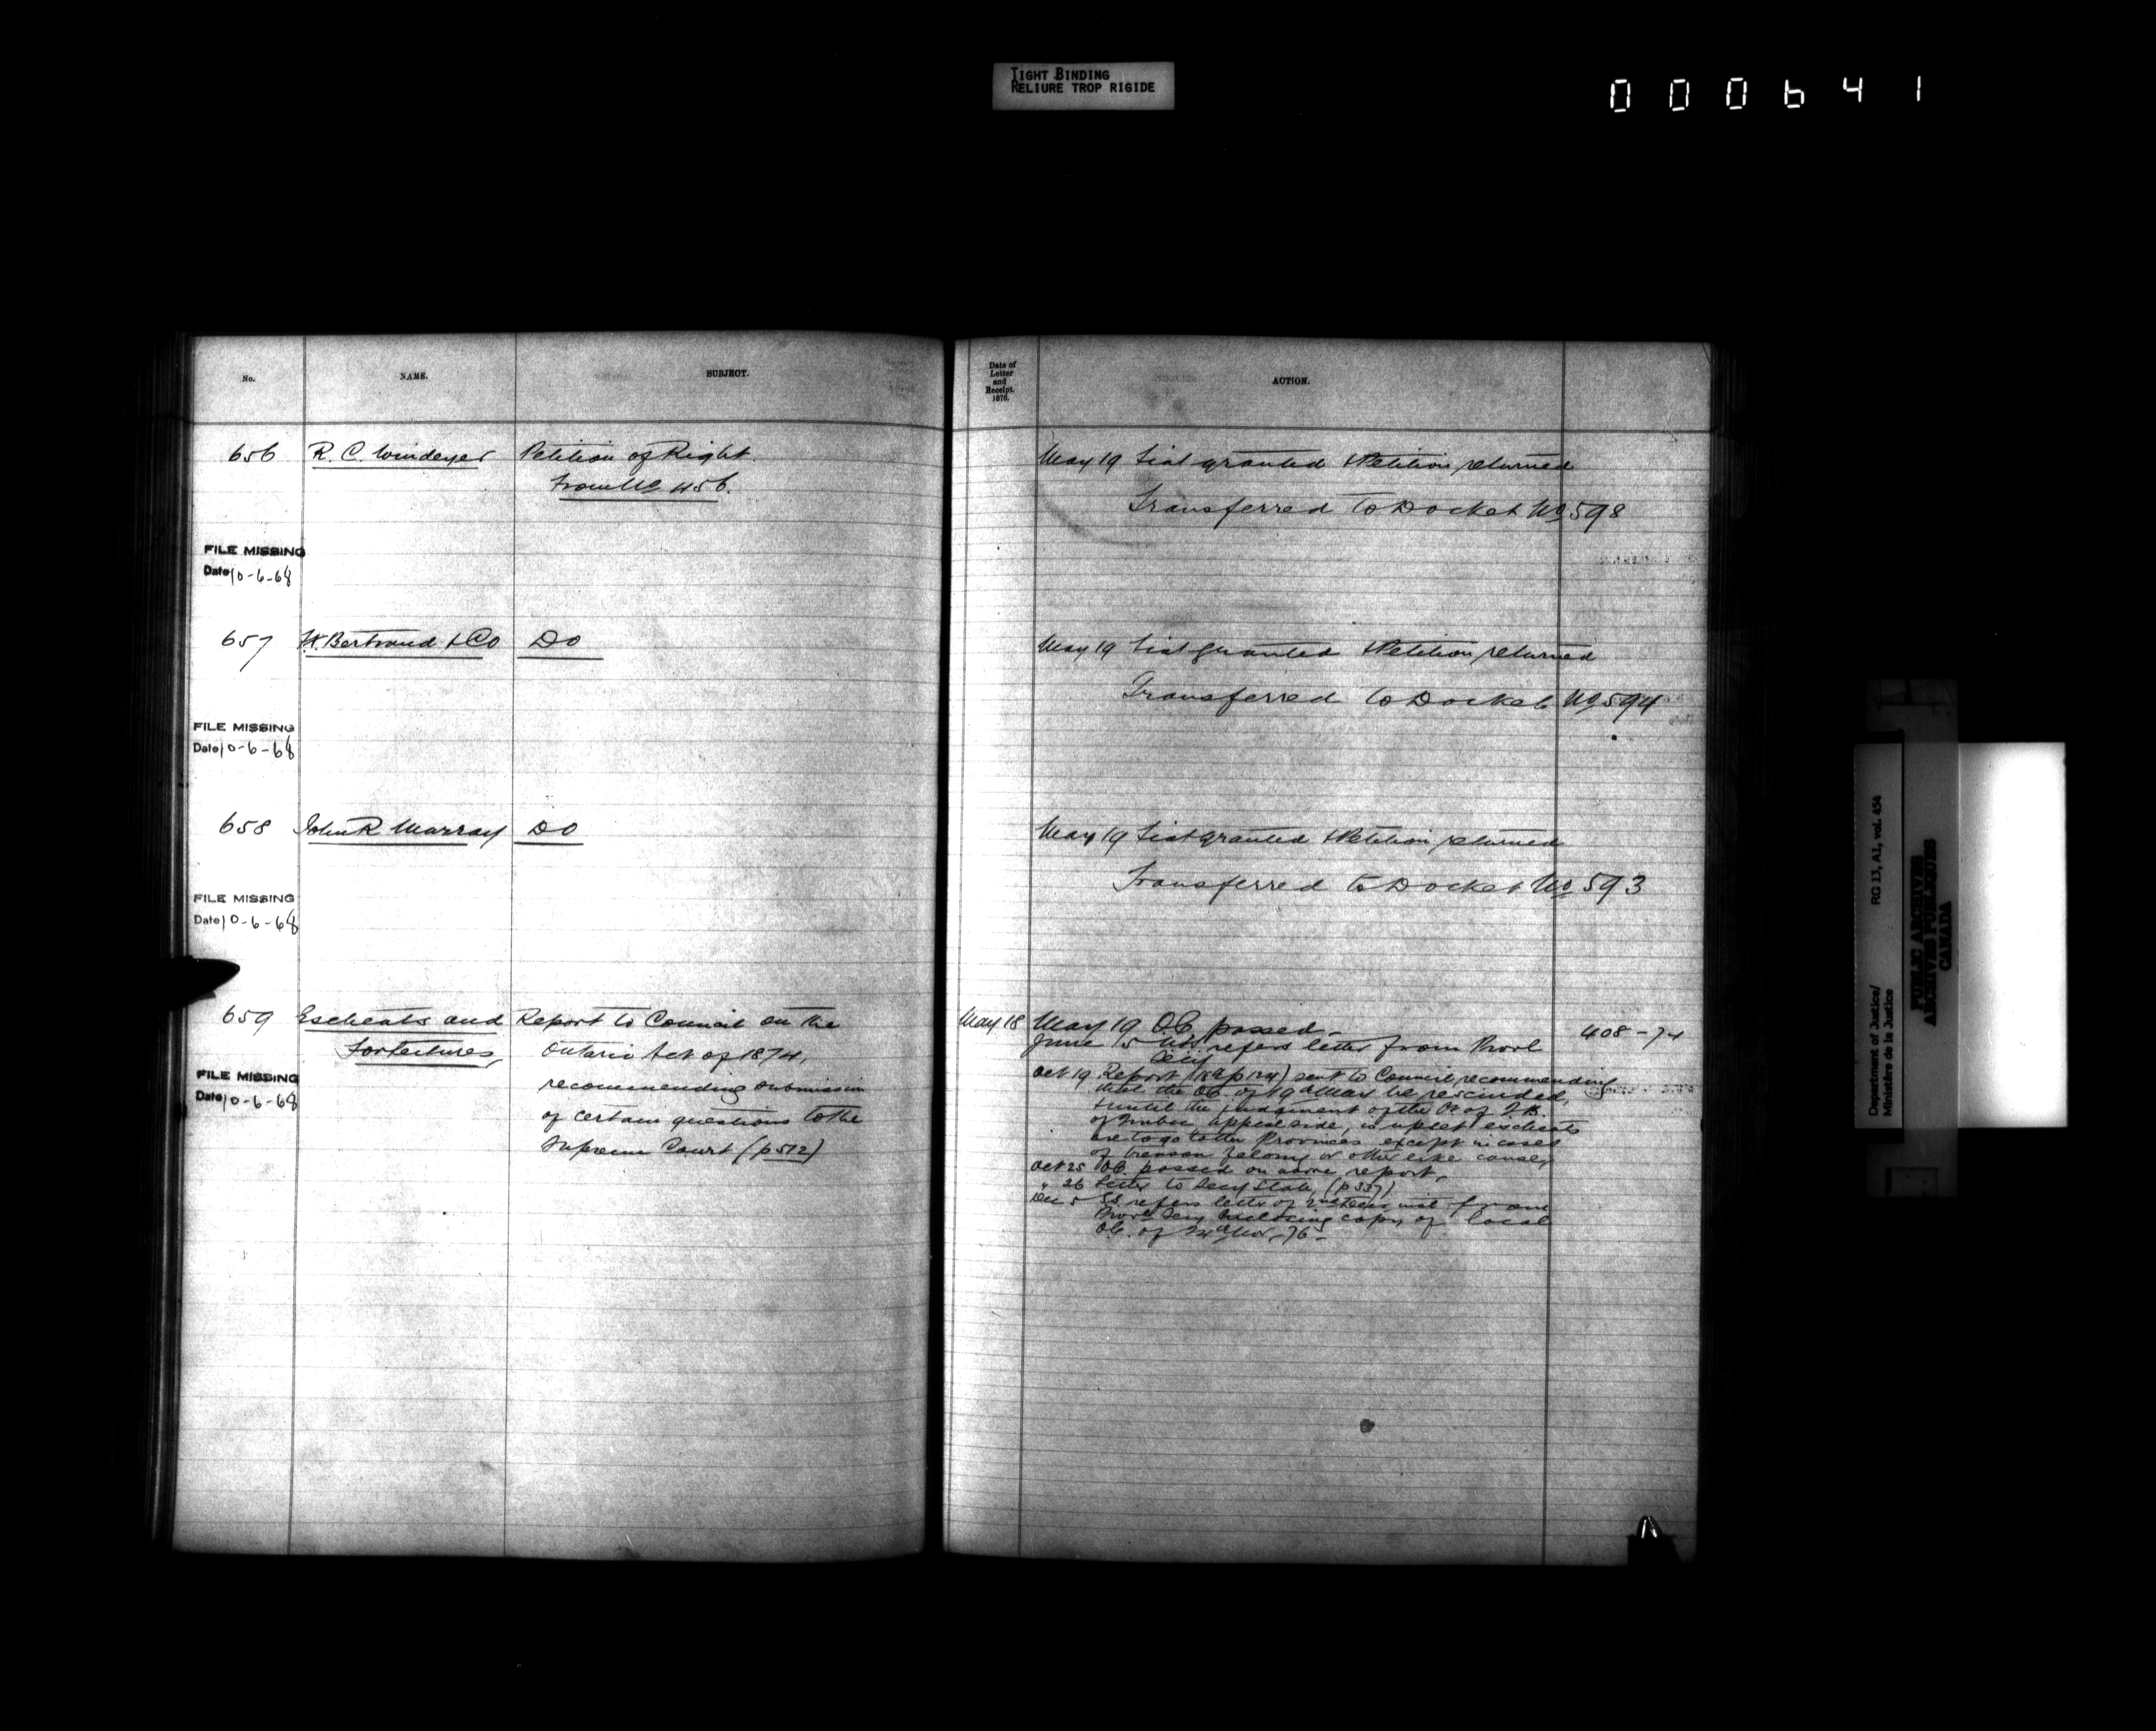 TIGHT BINDING
RELIURE TROP RIGIDE
000641
No. NAME. SUBJECT.
Date of
Letter
and
Receipt.
1876.
ACTION.
656 R. C. Windeyer Petition of Right.
from No 456.
May 19 Fiat granted & Petition returned
Transferred to Docket No 598
FILE MISSING
Date 10-6-68
657 H. Bertrand & Co Do
May 19 Fiat granted & Petition returned
Transferred to Docket No 594
FILE MISSING
Date 10-6-68
658 John R Murray Do
May 19 Fiat granted & Petition returned
Transferred to Docket No 593
FILE MISSING
Date 10-6-68
659 Escheats and Report to Council on the
Forfeitures, Ontario Act of 1874,
recommending submission
of certain questions to the
Supreme Court (p 512)
FILE MISSING
Date 10-6-68
May 18 May 19 O.C. passed - 408-74
June 15 refers letter from Provl
Secy
Oct 19 Report sent to Council recommending
that the OC of 19th May be rescinded,
& until the judgment of the Ct of Q.B.
of Quebec, appeal side, is upset escheats
are to go to the Provinces except in cases
of treason felony or other like cause,
Oct 25 OC. passed on above report,
" 26 Letter to Secy State (p 337)
Dec 5 SS refers letter of 2nd inst from
Provl Secy enclosing copy of local
O.C. of Nov, 76 -
Department of Justice/ RG 13, A1, vol. 454
Ministère de la Justice
PUBLIC ARCHIVES
ARCHIVES PUBLIQUES
CANADA